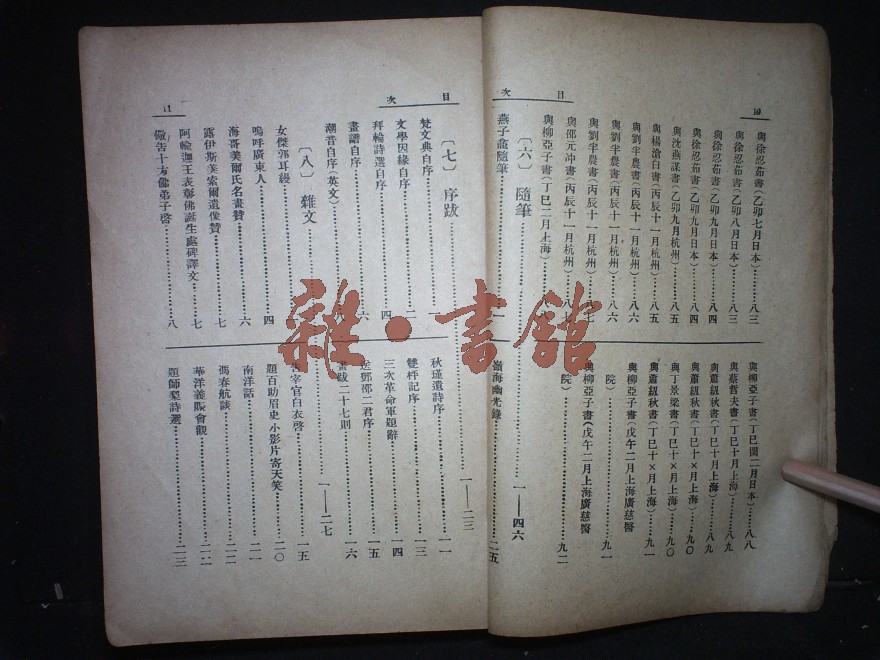 目次
與徐忍茹書(乙卯七月日本)……八三
與徐忍茹書(乙卯八月日本)……八三
與徐忍茹書(乙卯九月日本)……八四
與徐忍茹書(乙卯九月日本)……八四
與沈燕謀書(乙卯九月杭州)……八五
與楊滄白書(丙辰十一月杭州)……八五
與劉半農書(丙辰十一月杭州)……八六
與劉半農書(丙辰十一月杭州)……八六
與邵元冲書(丙辰十一月杭州)……八七
與柳亞子書(丁巳二月上海)
與柳亞子書(丁巳閏二月日本)……八八
與蔡哲夫書(丁巳十月上海)……八九
與蕭紉秋書(丁巳十月上海)……八九
與丁景梁書(丁巳十×月上海)……九〇
與蕭紉秋書(丁巳十×月上海)……九一
與柳亞子書(戊午二月上海廣慈醫院)……九一
與柳亞子書(戊午二月上海廣慈醫院)……九二
〔六〕隨筆……一——四六
燕子龕隨筆……一
嶺海幽光錄……二五
目次
〔七〕序跋……一——二三
梵文典自序……一
文學因緣自序……二
拜輪詩選自序……四
畫譜自序……六
潮音自序(英文)……八
秋瑾遺詩序……一一
雙枰記序……一三
三次革命軍題辭……一四
送鄧邵二君序……一五
畫跋二十七則……一六
〔八〕雜文……一——二七
女傑郭耳縵……一
嗚呼廣東人……四
海哥美爾氏名畫贊……六
露伊斯美索爾遺像贊……七
阿輸迦王表彰佛誕生處碑譯文……七
儆告十方佛弟子啓……八
告宰官白衣啓……一五
題百助眉史小影片寄天笑……二〇
南洋話……二一
馮春航談……二二
華洋義賑會觀……二二
題師梨詩選……二三
雜·書館